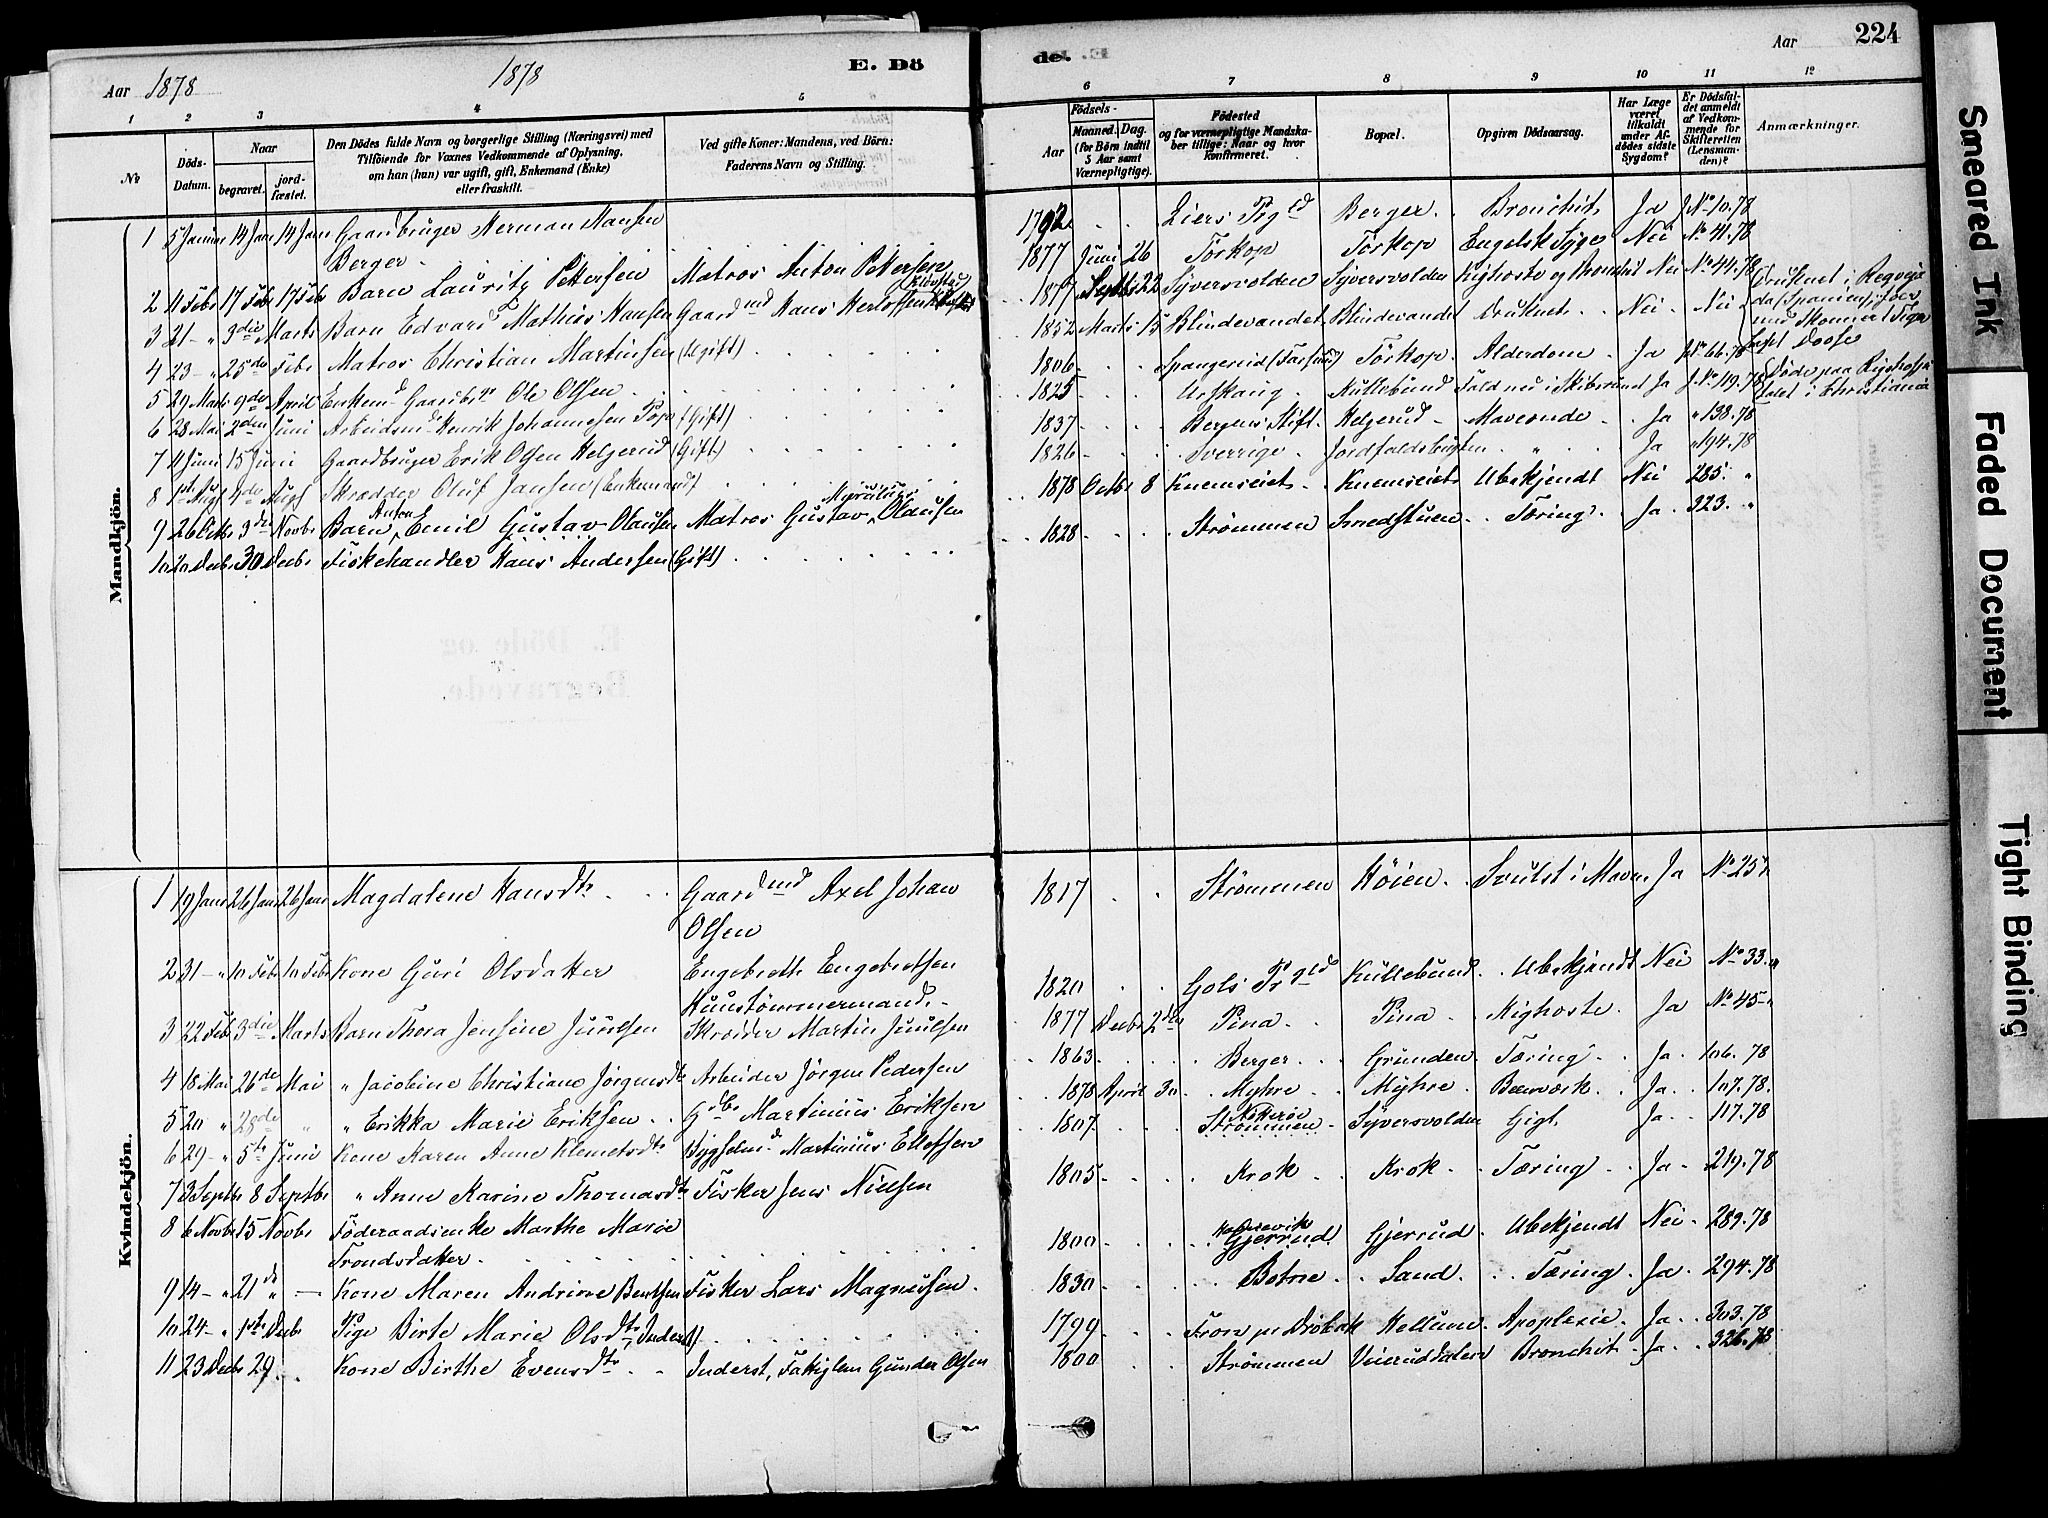 Aar 1878
1878
E. Dö
de.
Aar
224
1
2
3
4
5
6
7
8
9
10
11
12
№
Döds-
Datum.
Naar
begravet.
jord-
fæstet.
Den Dödes fulde Navn og borgerlige Stilling (Næringsvei) med
Tilföiende for Voxnes Vedkommende af Oplysning,
om han (hun) var ugift, gift, Enkemand (Enke)
eller fraskilt.
Ved gifte Koner: Mandens, ved Börn:
Faderens Navn og Stilling.
Födsels-
Aar
Maaned. Dag.
(for Börn indtil
5 Aar samt
Værnepligtige).
Födested
og for værnepligtige Mandska-
ber tillige: Naar og hvor
konfirmeret.
Bopæl.
Opgiven Dödsaarsag.
Har Læge
været
tilkaldt
under Af-
dödes sidste
Sygdom?
Er Dödsfal-
det anmeldt
af Vedkom-
mende for
Skifteretten
(Lensman-
den)?
Anmærkninger.
Mandkjön.
1 5 Januar 14 Jan 14 Jan Gaardbruger Herman Hansen
Berger
1792 Liers Pgld Berger Bronchit Ja No 10.78
2 11 Febr 17 Febr 17 Febr Barn Lauritz Pettersen Matros Anton Pettersen
1877 Juni 26 Torkop Torkop Engelsk Syge Nei No 41.78
3 21 - " 3die Marts Barn Edvard Mathias Hansen Gaardmd Hans Herlofsen
1877 Septbr 22 Syversvolden Syversvolden Kighoste og Bronchit Nei No 44.78
4 23 - " 25de Febr Matros Christian Martinsen (Ugift)
1852 Marts 15 Blindevandet Blindevandet Druknet Nei Nei
Druknet i
(Spanien)
5 29 Marts 9de April Enkemd Gaardbr Ole Olsen
1806 Torkop Alderdom Ja No 66.78
6 28 Mai 2den Juni Arbeidsmd Henrik Johannesen (Gift)
1825 Urskaug Kullebund Fald ned i Ja No 119.78
Döde paa Rigshospi-
talet i Christiania
7 11 Juni 15 Juni Gaardbruger Erik Olsen Helgerud (Gift)
1837 Bergens Stift Helgerud Maveonde Ja " 138.78
8 1ste Augst 4de Augst Skrædder Oluf Jansen (Enkemand)
1826 Sverrige Jordfaldsbugten " Ja " 194.78
9 26 Octbr 3die Novbr Barn Anton Emil Gustav Olausen Matros Gustav Olausen
1878 Octbr 8 Knemseiet Knemseiet Ubekjendt Nei 285. "
10 20 Decbr 30 Decbr Fiskehandler Hans Andersen (Gift)
1828 Strømmen Smedstuen Tæring Ja 323. "
Kvindekjön.
1 19 Janr 26 Janr 26 Janr Magdalene Hansdtr Gaardmd Axel Johan
Olsen
1817 Strømmen Höien Svulst i Maven Ja No 25 "
2 31 - " 10 Febr 10 Febr Kone Guri Olsdatter Engebreth Engebretsen
Huustömmermand
1820 Gols Prgld Kullebund Ubekjendt Nei No 33. "
3 22 Febr 3die Marts Barn Thora Jensine Juulsen Martin Juulsen
1877 Decbr 2den Pina Pina Kighoste Ja No 45 "
4 18 Mai 26de Mai " Jacobine Christiane Jørgensdtr Arbeider Jørgen Pedersen
1863 Berger Grunden Tæring Ja 106.78
5 20 " 28de " " Erikka Marie Eriksen Gdbr Martinius Eriksen
1878 April 30 Myhre Myhre Ja 107.78
6 29 - " 5te Juni Kone Karen Anne Klemetsdtr Bygselmd Martinius Ellefsen
1807 Strømmen Syversvolden Gigt Ja 117.78
7 3 Septbr 8 Septbr " Anne Karine Thomasdtr Fisker Jens Nielsen
1805 Krok Krok Tæring Ja 219.78
8 6 Novbr 15 Novbr Föderaadsenke Marthe Marie
Trondsdatter
1800 Gjerrud Gjerrud Ubekjendt Nei 289.78
9 14 - " 21de " Kone Maren Andrine Berntsen Fisker Lars Magnussen
1830 Botne Sand Tæring Ja 294.78
10 24 - " 1ste Decbr Pige Birte Marie Olsdtr, Inderst
1799 Fron pr Drøbak Hellum Apoplexie Ja 303.78
11 23 Decbr 29 Kone Birthe Evensdtr Inderst, Fattiglem Gunder Olsen
1800 Strømmen Veieruddalen Bronchit Ja 326.78
Smeared Ink
Faded Document
Tight Binding